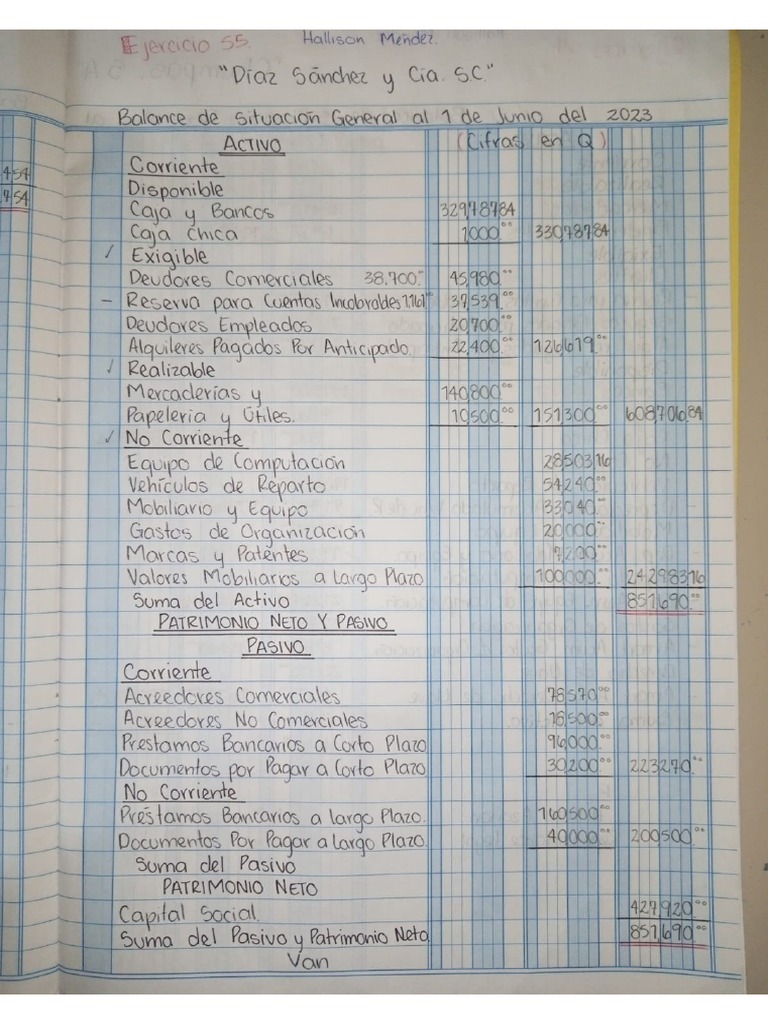 Ejercicio 55. Hallison Méndez.
"Díaz Sánchez y Cía. S.C."
Balance de Situación General al 1 de Junio del 2023
ACTIVO (Cifras en Q)
454
454
Corriente
Disponible
Caja y Bancos 32978784
Caja Chica 1000.00 33078784
✓ Exigible
Deudores Comerciales 38.700.- 45,980.00
- Reserva para Cuentas Incobrables 37,539.00
Deudores Empleados 20,700.00
Alquileres Pagados Por Anticipado 22,400.00 126,619.00
✓ Realizable
Mercaderías y 140800.00
Papelería y Útiles. 10,500.00 151,300.00 608706,84
✓ No Corriente
Equipo de Computación 28503,16
Vehículos de Reparto 54,240.00
Mobiliario y Equipo 33,040.00
Gastos de Organización 20,000.-
Marcas y Patentes 7,200.00
Valores Mobiliarios a Largo Plazo 100000.00 24298316
Suma del Activo 851,690.00
PATRIMONIO NETO Y PASIVO
PASIVO
Corriente
Acreedores Comerciales 78570.00
Acreedores No Comerciales
Prestamos Bancarios a Corto Plazo 96000.00
Documentos por Pagar a Corto Plazo 30,200.00 223270.00
No Corriente
Préstamos Bancarios a largo Plazo. 160500.00
Documentos Por Pagar a Largo Plazo. 40000.00 200500.00
Suma del Pasivo
PATRIMONIO NETO
Capital Social. 427,920.00
Suma del Pasivo y Patrimonio Neto. 851,690.00
Van